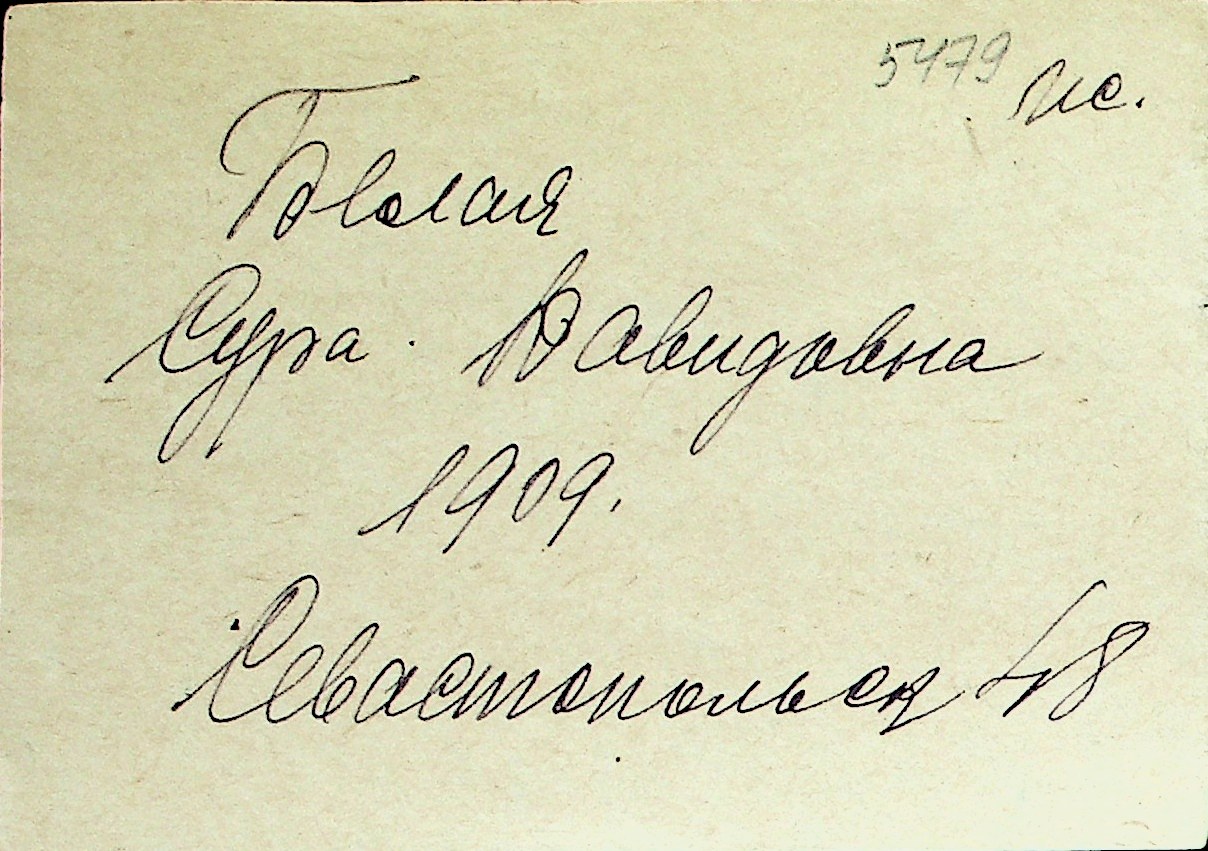 5479 ис.
Белая
Сура Давидовна
1909.
Севастопольск 48